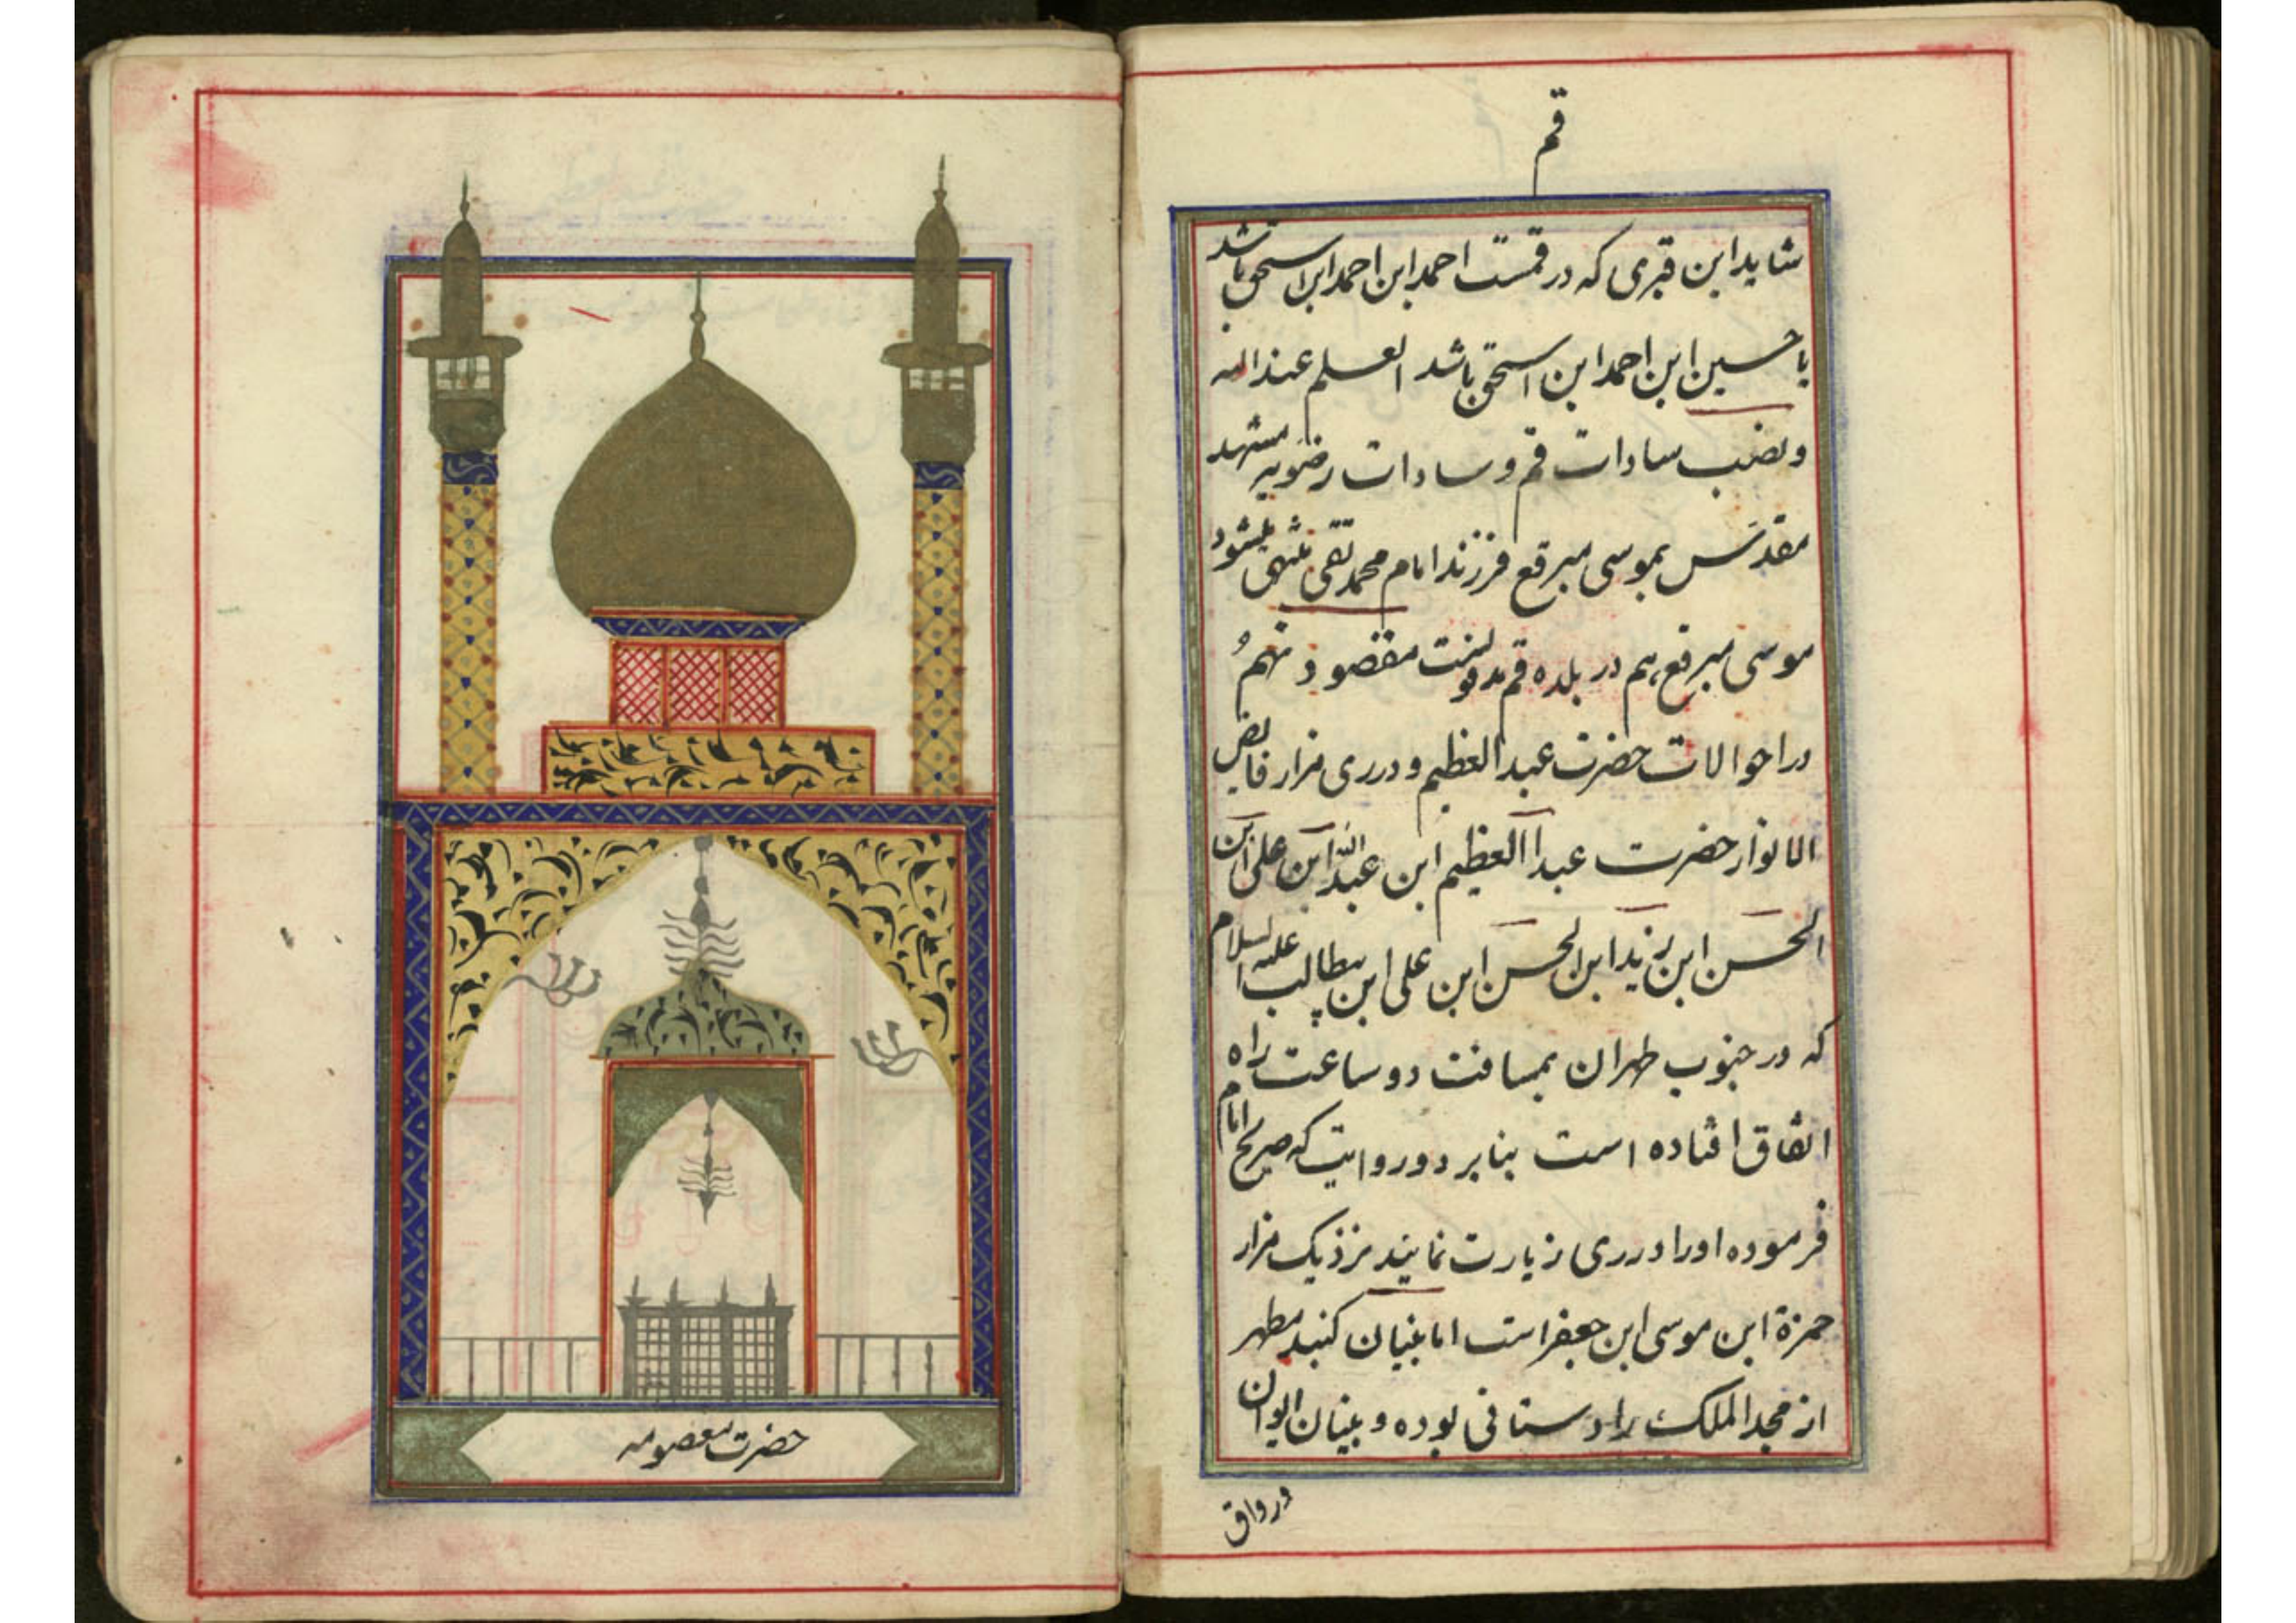 قم
شاید این قبری که در قمست احمد ابن احمد ابن اسحق باشد
یا حسین ابن احمد ابن اسحق باشد العلم عند الله
و نصب سادات قم و سادات رضویه مشهد
مقدس بموسی مبرقع فرزند امام محمد تقی منتهی میشود
موسی مبرقع هم در بلده قم مدفونست مقصود نهم
در احوالات حضرت عبدالعظیم و در ری مزار فایض
الانوار حضرت عبدالعظیم ابن عبدالله ابن علی ابن
الحسن ابن زید ابن الحسن ابن علی ابن علیه السلام
که در جنوب طهران بمسافت دو ساعت راه
اتفاق افتاده است بنابر دو روایت که صریح امام
فرموده او را در ری زیارت نمایند نزدیک مزار
حمزة ابن موسی ابن جعفر است اما بنیان کنبد مطهر
از مجد الملک بوده و بنیان ایوان
و رواق
حضرت معصومه